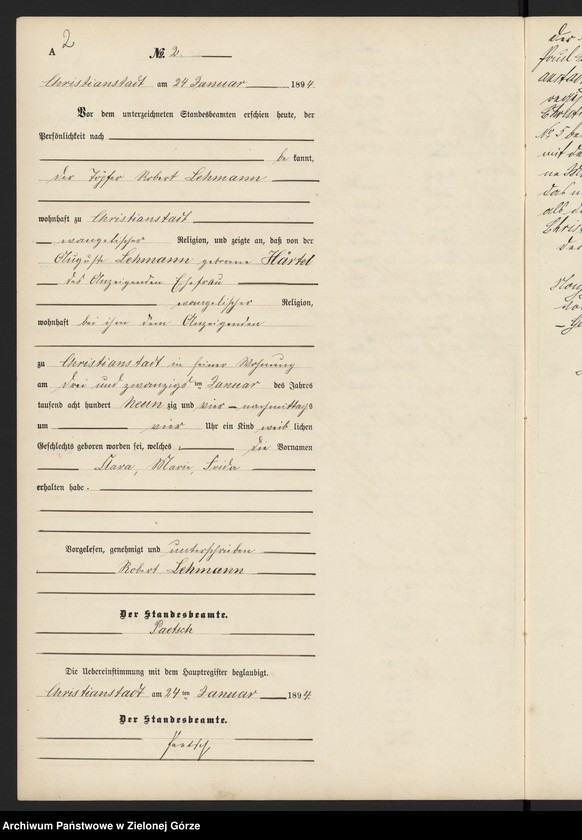 2
A № 2.
Christianstadt am 24 Januar 1894.
Vor dem unterzeichneten Standesbeamten erschien heute, der
Persönlichkeit nach
be kannt,
der Töpfer Robert Lehmann
wohnhaft zu Christianstadt
evangelischer Religion, und zeigte an, daß von der
Auguste Lehmann geborene Härtel
des Anzeigenden Ehefrau
evangelischer Religion,
wohnhaft bei ihm dem Anzeigenden
zu Christianstadt in seiner Wohnung
am drei und zwanzigsten Januar des Jahres
tausend acht hundert Neun zig und vier - nachmittags
um vier Uhr ein Kind weib lichen
Geschlechts geboren worden sei, welches die Vornamen
Klara, Marie, Frida
erhalten habe.
Vorgelesen, genehmigt und unterschrieben
Robert Lehmann
Der Standesbeamte.
Paetsch
Die Uebereinstimmung mit dem Hauptregister beglaubigt.
Christianstadt am 24 ten Januar 1894.
Der Standesbeamte.
Paetsch
Archiwum Państwowe w Zielonej Górze